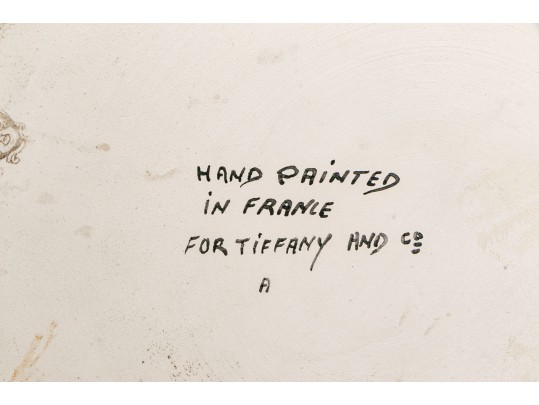 HAND PAINTED
IN FRANCE
FOR TIFFANY AND Co
A